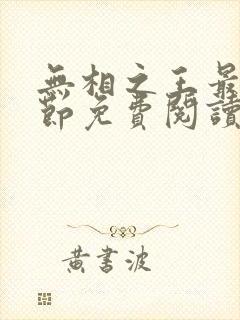 無相之王最
節免費閱讀
黃書波